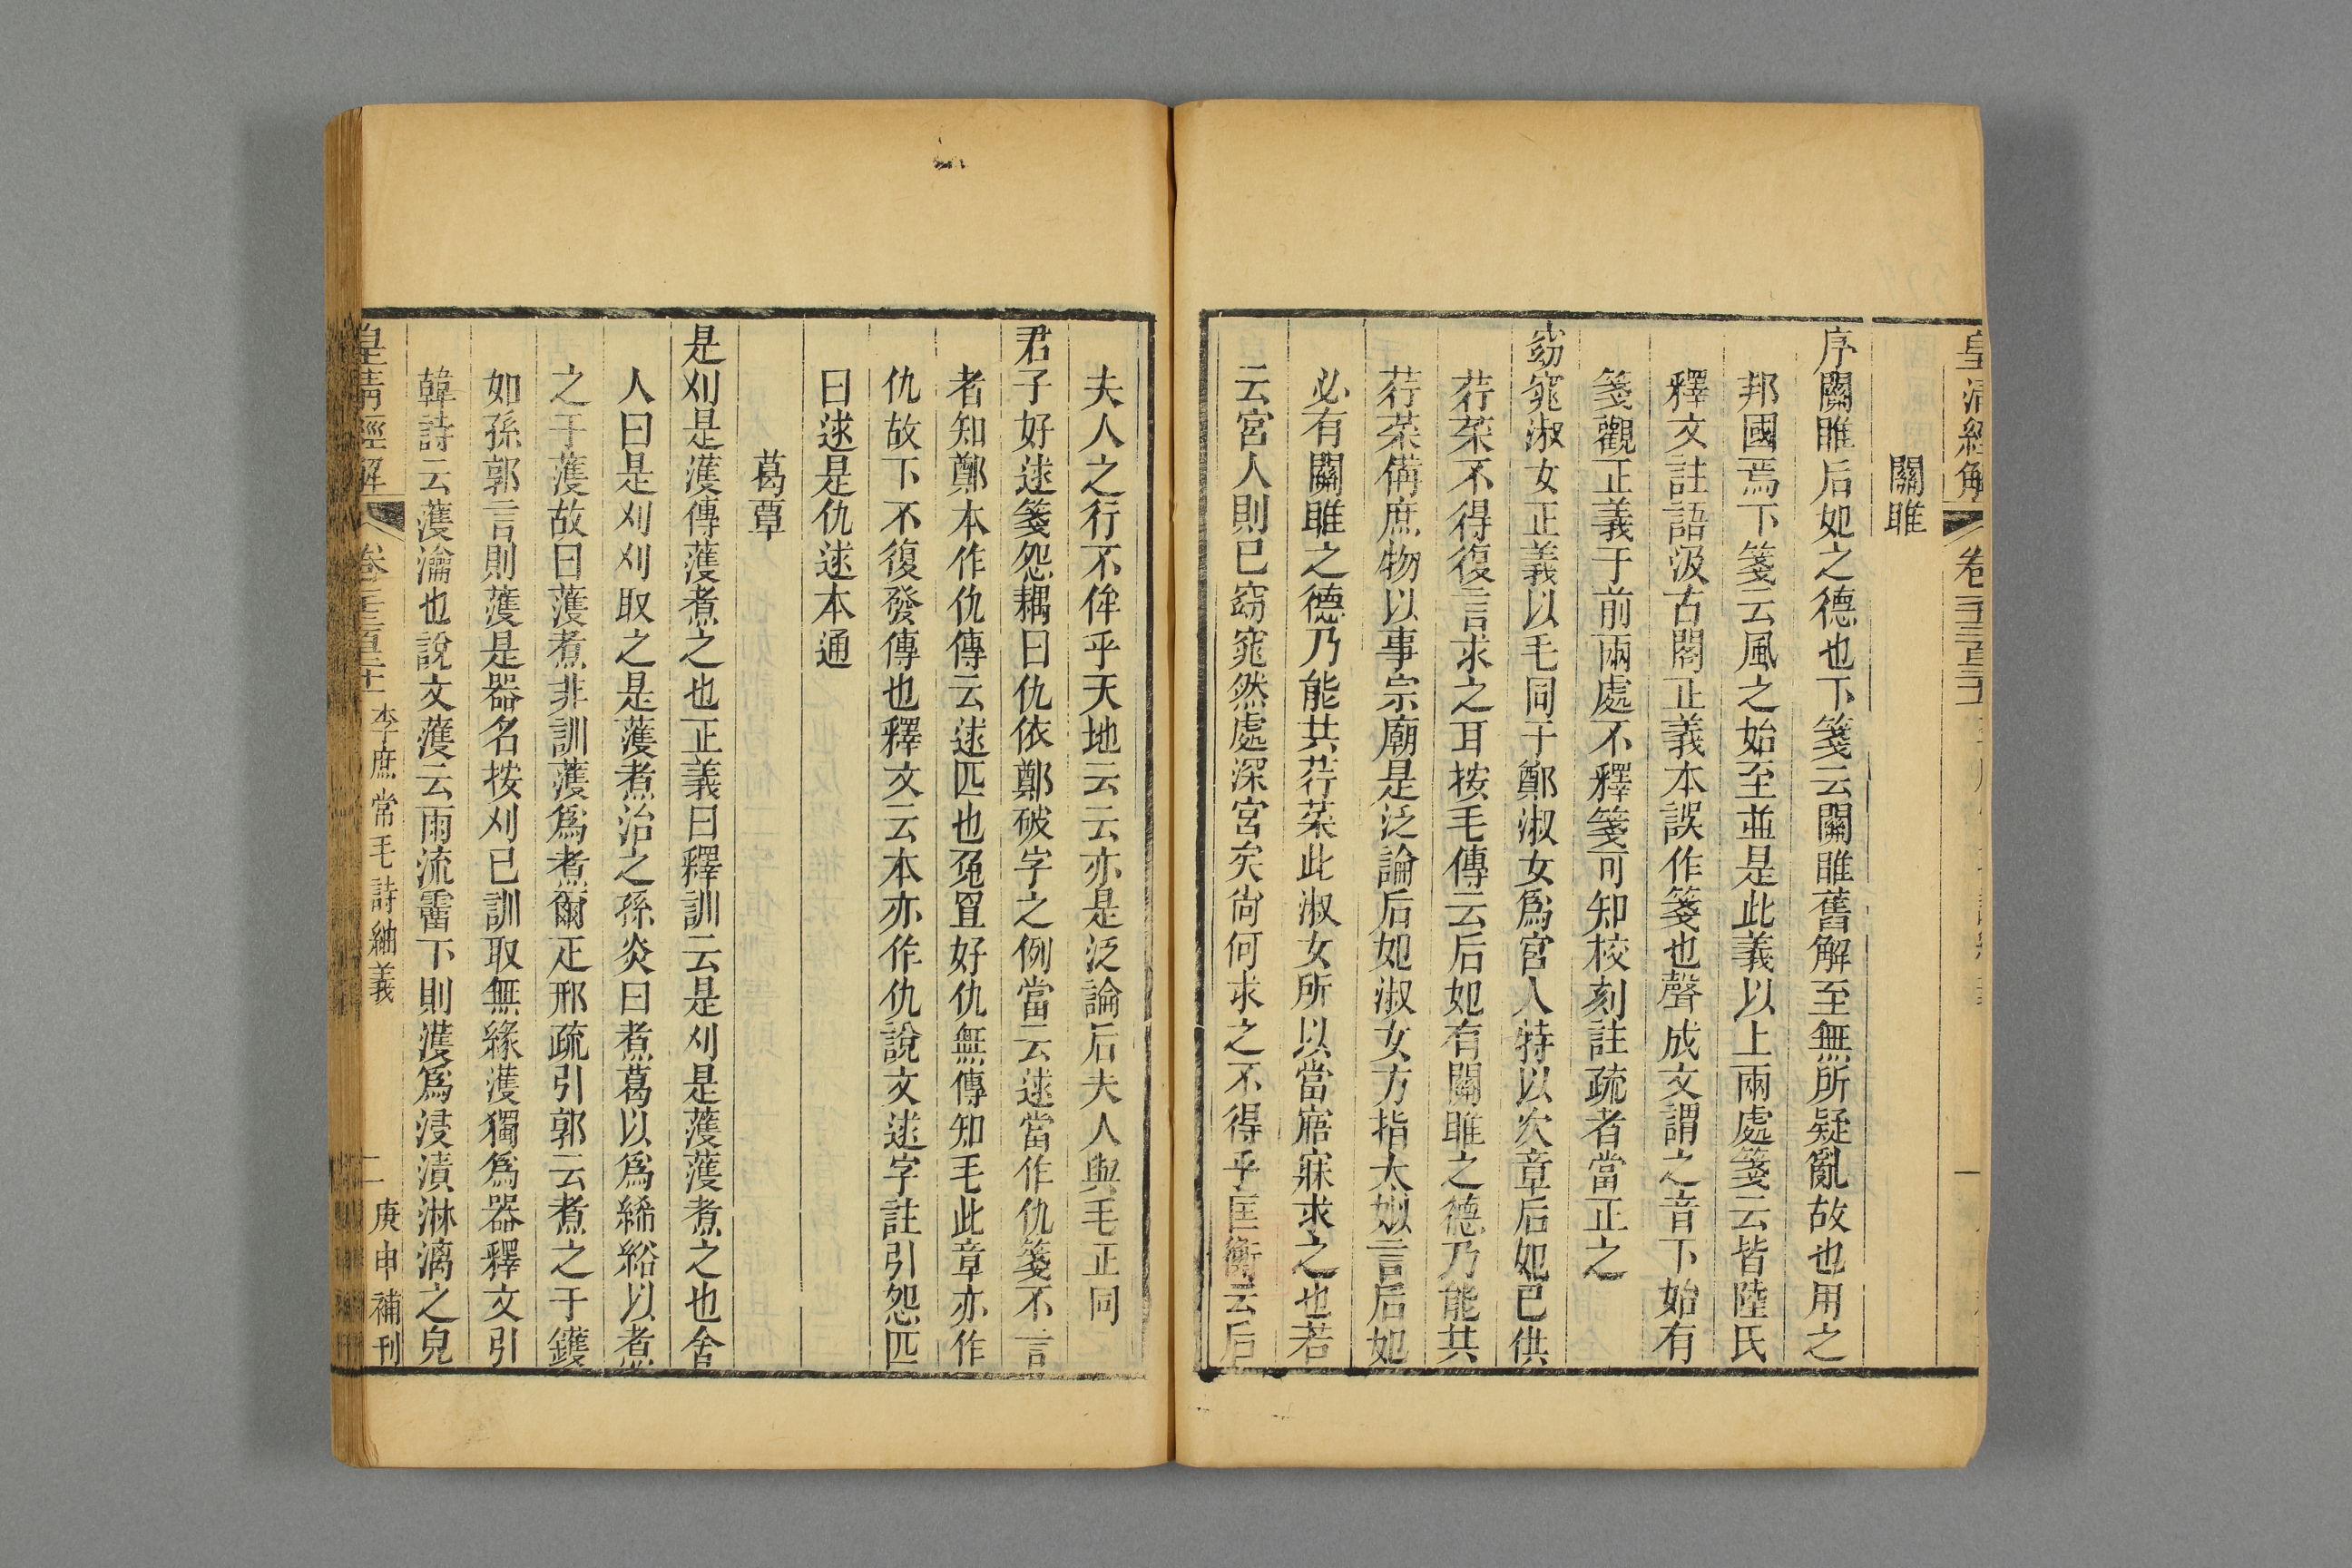 皇清經解 卷千三百三十
關雎
序關雎后妃之德也下箋云關雎舊解至無所疑亂故也用之
邦國焉下箋云風之始至並是此義以上兩處箋云皆陸氏
釋文註語汲古閣正義本誤作箋也聲成文謂之音下始有
箋觀正義于前兩處不釋箋可知校刻註疏者當正之
窈窕淑女正義以毛同于鄭淑女為宮人特以次章后妃巳供
荇菜不得復言求之耳按毛傳云后妃有關雎之德乃能共
荇菜備庶物以事宗廟是泛論后妃淑女方指太姒言后妃
必有關雎之德乃能共荇菜此淑女所以當寤寐求之也若
云宮人則已窈窕然處深宮矣尚何求之不得乎匡衡云后
夫人之行不侔乎天地云云亦是泛論后夫人與毛正同
君子好逑箋怨耦曰仇依鄭破字之例當云逑當作仇箋不言
者知鄭本作仇傳云逑匹也兔罝好仇無傳知毛此章亦作
仇故下不復發傳也釋文云本亦作仇說文逑字註引怨匹
曰逑是仇逑本通
葛覃
是刈是濩傳濩煮之也正義曰釋訓云是刈是濩濩煮之也舍
人曰是刈刈取之是濩煮治之孫炎曰煮葛以為絺綌以煮
之于濩故曰濩煮非訓濩為煮爾疋邢疏引郭云煮之于鑊
如孫郭言則濩是器名按刈已訓取無緣濩獨為器釋文引
韓詩云濩瀹也說文濩云雨流霤下則濩為浸漬淋漓之皃
皇清經解 李庶常毛詩紬義 二 庚申補刊